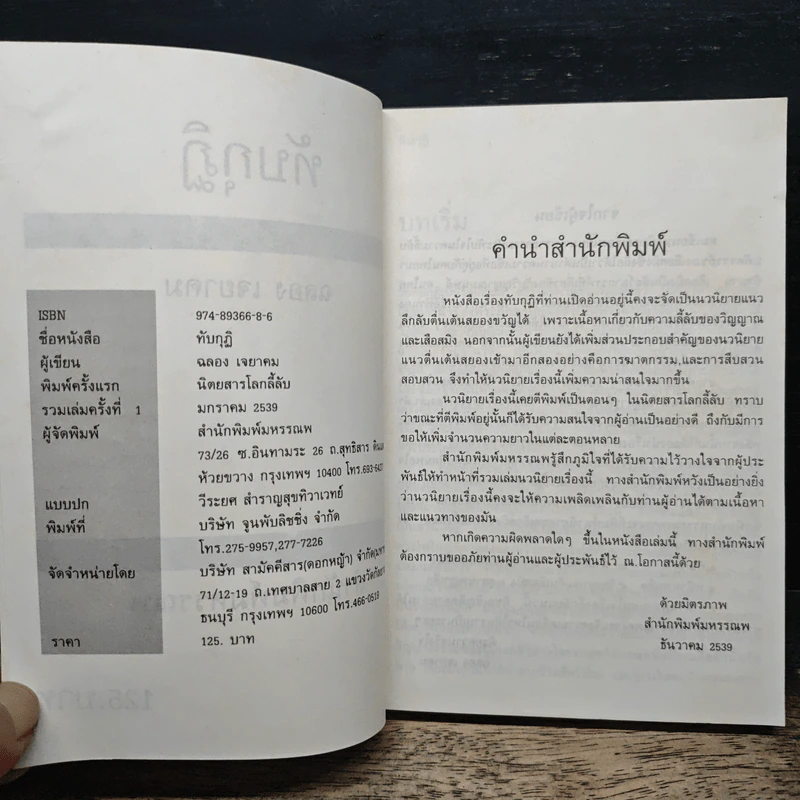 ISBN 974-89366-8-6
ชื่อหนังสือ ทับกุฏิ
ผู้เขียน ฉลอง เจยาคม
พิมพ์ครั้งแรก นิตยสารโลกลี้ลับ
รวมเล่มครั้งที่ 1 มกราคม 2539
ผู้จัดพิมพ์ สำนักพิมพ์มหรรณพ
73/26 ซ.อินทามระ 26 ถ.สุทธิสาร
ห้วยขวาง กรุงเทพฯ 10400 โทร.693-6427
แบบปก วีระยศ สำราญสุขทิวาเวทย์
พิมพ์ที่ บริษัท จูนพับลิชชิ่ง จำกัด
โทร.275-9957,277-7226
จัดจำหน่ายโดย บริษัท สามัคคีสาร(ดอกหญ้า) จำกัด
71/12-19 ถ.เทศบาลสาย 2 แขวง
ธนบุรี กรุงเทพฯ 10600 โทร.466-0519
ราคา 125. บาท
คำนำสำนักพิมพ์
หนังสือเรื่องทับกุฏิที่ท่านเปิดอ่านอยู่นี้คงจะจัดเป็นนวนิยายแนว
ลึกลับตื่นเต้นสยองขวัญได้ เพราะเนื้อหาเกี่ยวกับความลี้ลับของวิญญาณ
และเสือสมิง นอกจากนั้นผู้เขียนยังได้เพิ่มส่วนประกอบสำคัญของนวนิยาย
แนวตื่นเต้นสยองเข้ามาอีกสองอย่างคือการฆาตกรรม,และการสืบสวน
สอบสวน จึงทำให้นวนิยายเรื่องนี้เพิ่มความน่าสนใจมากขึ้น
นวนิยายเรื่องนี้เคยตีพิมพ์เป็นตอนๆ ในนิตยสารโลกลี้ลับ ทราบ
ว่าขณะที่ตีพิมพ์อยู่นั้นก็ได้รับความสนใจจากผู้อ่านเป็นอย่างดี ถึงกับมีการ
ขอให้เพิ่มจำนวนความยาวในแต่ละตอนหลาย
สำนักพิมพ์มหรรณพรู้สึกภูมิใจที่ได้รับความไว้วางใจจากผู้ประ
พันธ์ให้ทำหน้าที่รวมเล่มนวนิยายเรื่องนี้ ทางสำนักพิมพ์หวังเป็นอย่างยิ่ง
ว่านวนิยายเรื่องนี้คงจะให้ความเพลิดเพลินกับท่านผู้อ่านได้ตามเนื้อหา
และแนวทางของมัน
หากเกิดความผิดพลาดใดๆ ขึ้นในหนังสือเล่มนี้ ทางสำนักพิมพ์
ต้องกราบขออภัยท่านผู้อ่านและผู้ประพันธ์ไว้ ณ.โอกาสนี้ด้วย
ด้วยมิตรภาพ
สำนักพิมพ์มหรรณพ
ธันวาคม 2539